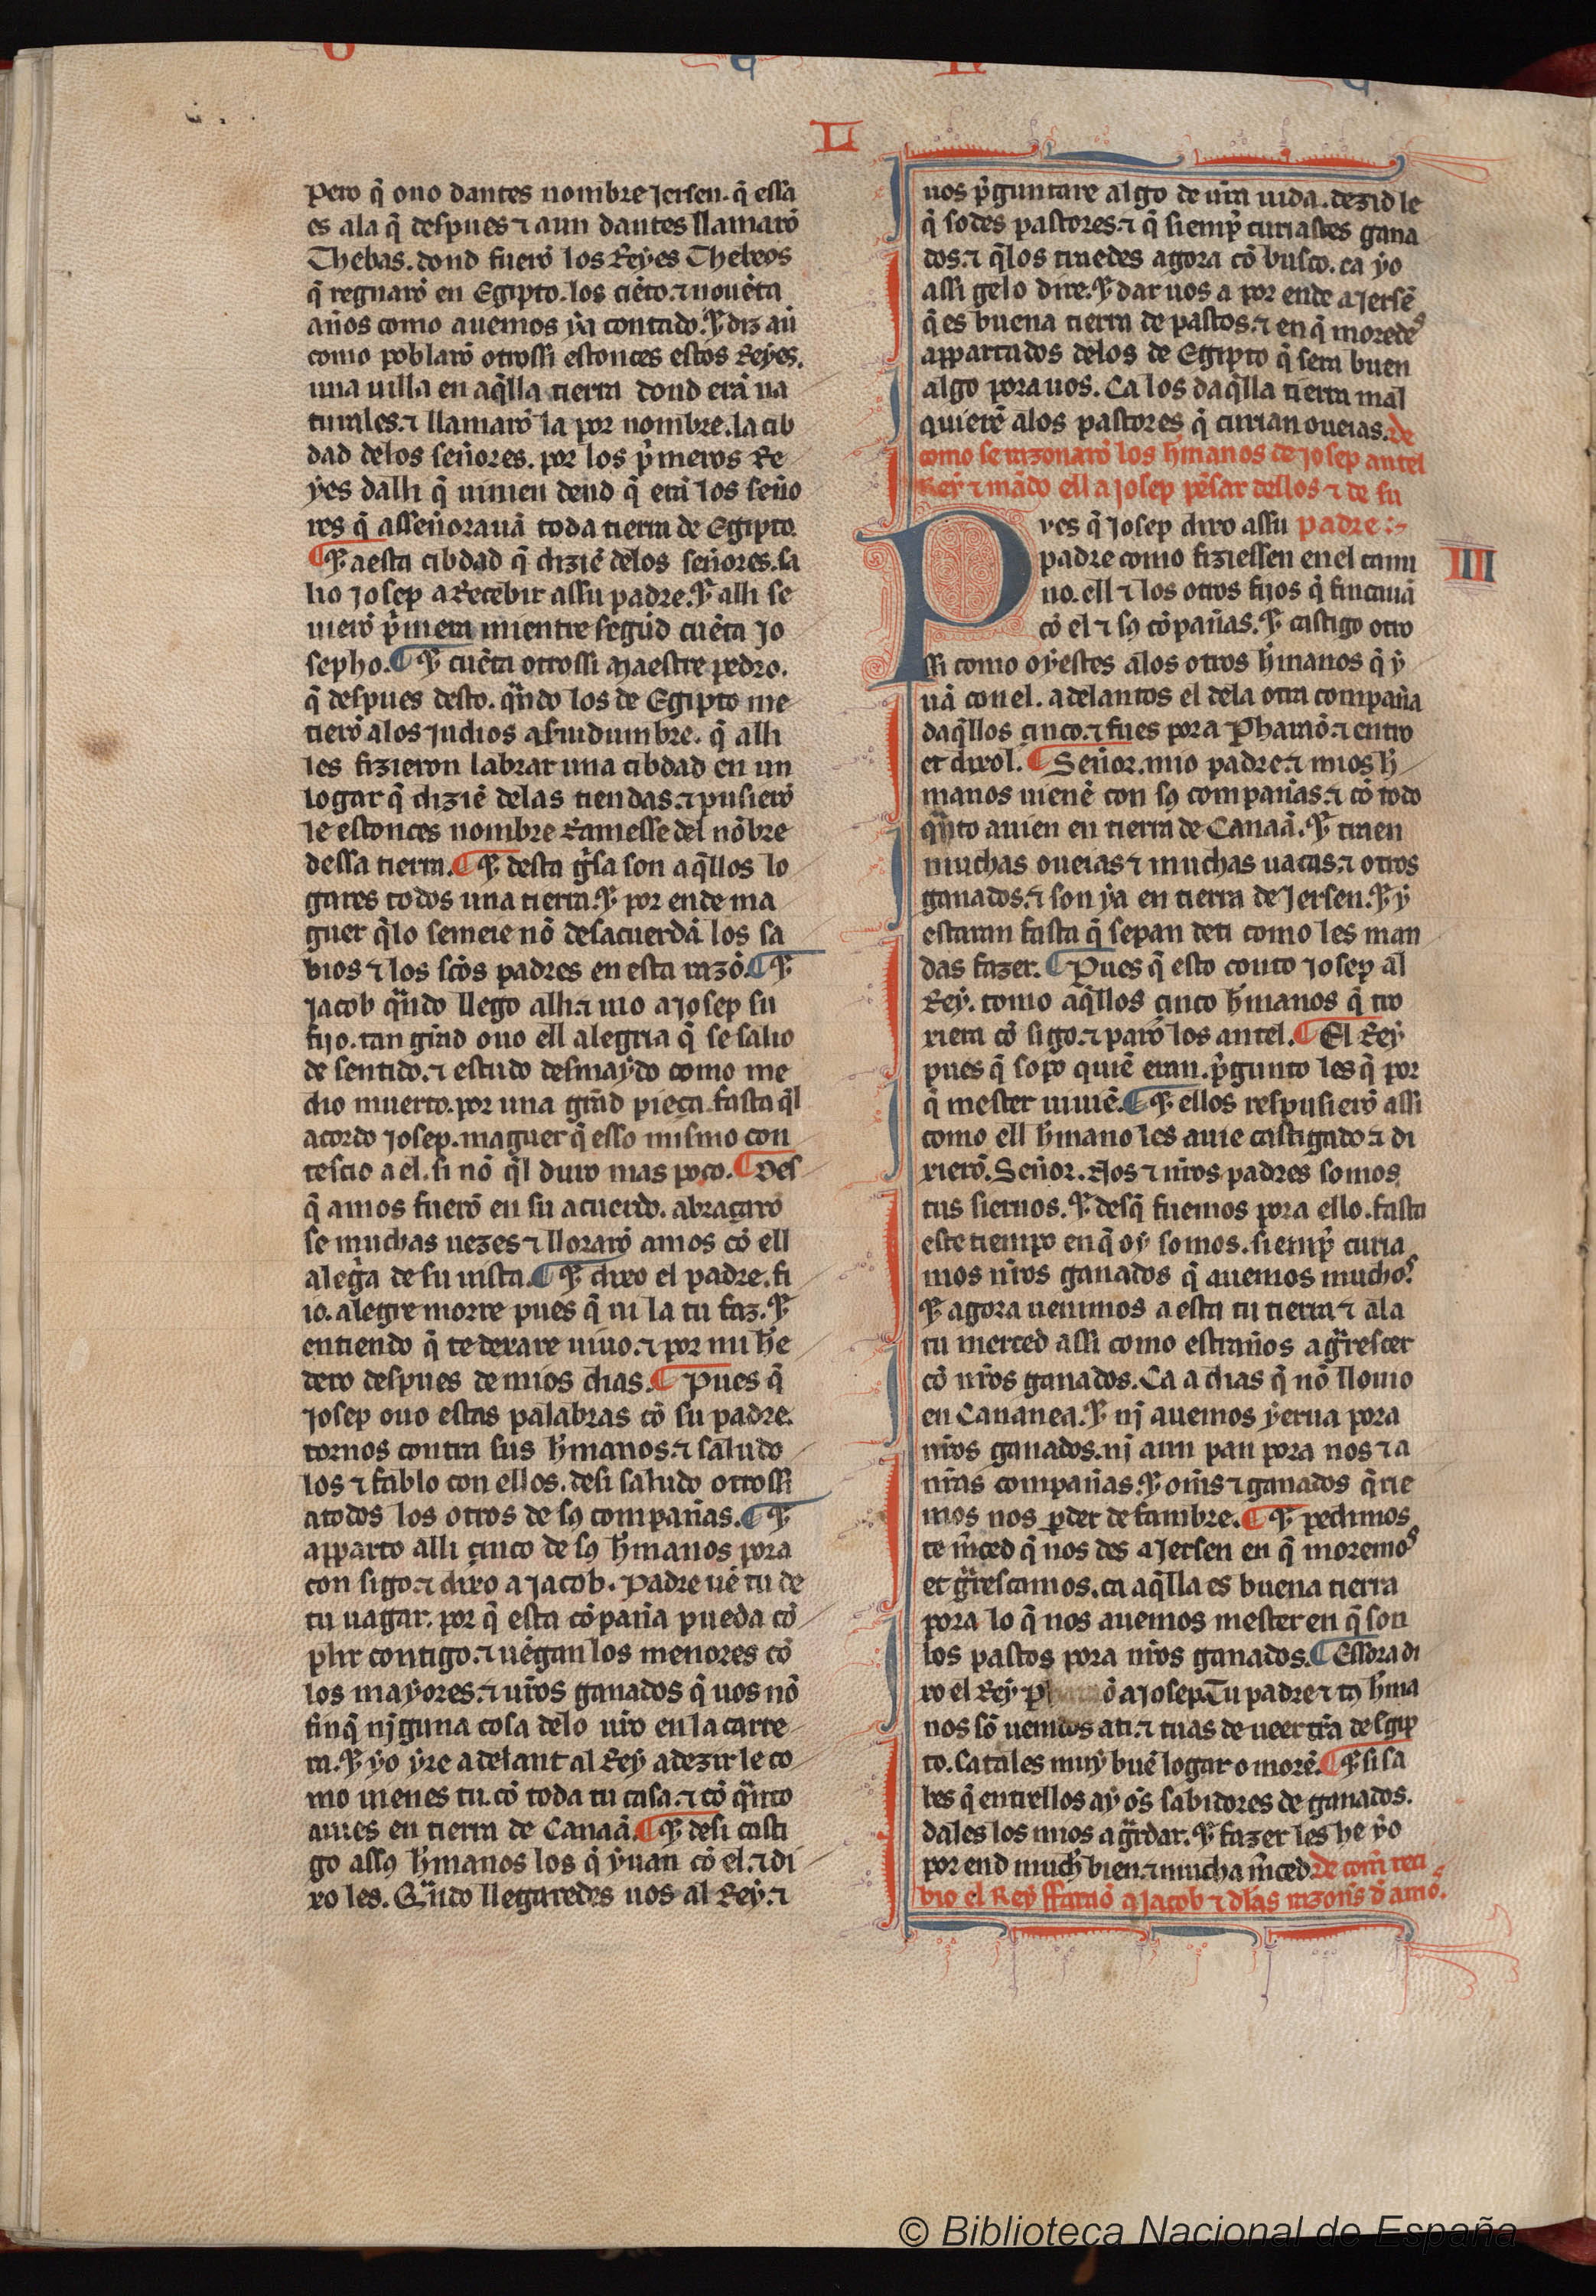 L
pero q̃ ouo dantes nombre Jersen. q̃ essa
es ala q̃ despues ⁊ aun dantes llamarõ
Thebas. dond fuerõ los Reyes Thebeos
q̃ regnarõ en Egipto. los ciẽto. ⁊ nouẽta
años como auemos ya contado. Et diz aũ
como poblarõ otrossi estonces estos Reyes.
una uilla en aq̃lla tierra dond erã na
turales. ⁊ llamarõ la por nombre. la cib
dad delos señores. por los p̃meros Re
yes dalli q̃ uinien dend q̃ erã los seño
res q̃ asseñorauã toda tierra de Egipto.
¶ Et a esta cibdad q̃ diziẽ delos señores. sa
lio josep a Recebir assu padre. Et alli se
uierõ p̃mera mientre segũd cuẽta Jo
sepho. ¶ Et cuẽta otrossi maestre pedro.
q̃ despues desto. qñdo los de Egipto me
tierõ alos judios a siudumbre. q̃ alli
les fizieron labrar una cibdad en un
logar q̃ diziẽ delas tiendas. ⁊ pusierõ
le estonces nombre Ramesse del nõbre
dessa tierra. ¶ Et desta gĩsa son aq̃llos lo
gares todos una tierra. Et por ende ma
guer q̃lo semeie nõ desacuerdã los sa
bios ⁊ los sc̃os padres en esta razõ. ¶ Et
jacob qñdo llego alli. ⁊ uio a josep su
fijo. tan grãd ouo ell alegria q̃ se salio
de sentido. ⁊ estudo desmaydo como me
dio muerto. por una grãd pieça fasta q̃l
acordo josep. maguer q̃ esso mismo con
tescio a el. si nõ q̃l duro mas poco. ¶ Des
q̃ amos fuerõ en su acuerdo. abraçarõ
se muchas uezes ⁊ llorarõ amos cõ ell
alegr̃a de su uista. ¶ Et dixo el padre. fi
io. alegre morre pues q̃ ui la tu faz. Et
entiendo q̃ te dexare uiuo. ⁊ por mi he
dero despues de mios dias. ¶ Pues q̃
josep ouo estas palabras cõ su padre.
tornos contra sus h̃manos. ⁊ saludo
los ⁊ fablo con ellos. desi saludo otrossi
a todos los otros de sꝯ compañas. ¶ Et
apparto alli çinco de sꝯ h̃manos pora
con sigo. ⁊ dixo a jacob. Padre uẽ tu de
tu uagar. por q̃ esta cõpaña pueda cõ
plir contigo. ⁊ uẽgan los menores cõ
los mayores. ⁊ ur̃os ganados q̃ uos nõ
finq̃ njguna cosa delo ur̃o en la carre
ra. Et yo yre adelant al Rey a dezir le co
mo uienes tu. cõ toda tu casa. ⁊ cõ qñto
auies en tierra de Canaã. ¶ Et desi casti
go assꝯ h̃manos los q̃ yuan cõ el. ⁊ di
xo les. Qñdo llegaredes uos al Rey. ⁊
uos p̃guntare algo de ur̃a uida. dezid le
q̃ sodes pastores. ⁊ q̃ siemp̃ curiastes gana
dos. ⁊ q̃los tinedes agora cõ busco. ca yo
assi gelo dire. Et dar uos a por ende a Jersẽ
q̃ es buena tierra de pastos. ⁊ en q̃ moredes
appartados delos de Egipto q̃ sera buen
algo pora uos. Ca los daq̃lla tierra mal
quierẽ alos pastores q̃ curian oueias. de
como se razonarõ los h̃manos de josep antel
Rey ⁊ mãdo ell a josep pẽsar dellos ⁊ de su
Pves q̃ josep dixo assu padre :~
padre como fiziessen en el cami
no. ell ⁊ los otros fijos q̃ fincauã
III
cõ el ⁊ sꝯ cõpañas. Et castigo otro
ssi como oyestes alos otros h̃manos q̃ y
uã con el. adelantos el dela otra compaña
daq̃llos çinco. ⁊ fues pora Pharaõ. ⁊ entro
et dixol. ¶ Señor. mio padre. ⁊ mios h̃
manos uienẽ con sꝯ compañas. ⁊ cõ todo
qñto auien en tierra de Canaã. Et traen
muchas oueias ⁊ muchas uacas. ⁊ otros
ganados. ⁊ son ya en tierra de Jersen. Et y
estaran fasta q̃ sepan deti como les man
das fazer. ¶ Pues q̃ esto conto josep al
Rey. tomo aq̃llos çinco h̃manos q̃ tro
xiera cõ sigo. ⁊ parõ los antel. ¶ El Rey
pues q̃ sopo quiẽ eran. p̃gunto les q̃ por
q̃ mester uiuiẽ. ¶ Et ellos respusierõ assi
como ell h̃mano les auie castigado. ⁊ di
xierõ. Señor. Nos ⁊ nr̃os padres somos
tus sieruos. Et desq̃ fuemos pora ello. fasta
este tiempo en q̃ oy somos. siemp̃ curia
mos nr̃os ganados q̃ auemos muchos.
Et agora uenimos a esta tu tierra ⁊ ala
tu merced assi como estraños a gũrescer
cõ nr̃os ganados. Ca a dias q̃ nõ llouio
en Cananea. Et nj auemos yerua pora
nr̃os ganados. nj aun pan pora nos ⁊ a
nr̃as compañas. Et om̃s ⁊ ganados q̃rie
mos nos ꝑder de fambre. ¶ Et pedimos
te m̃ced q̃ nos des a Jersen en q̃ moremos
et gũrescamos. ca aq̃lla es buena tierra
pora lo q̃ nos auemos mester en q̃ son
los pastos pora nr̃os ganados. ¶ Essora di
xo el Rey Pharaõ a josep. Tu padre ⁊ tꝯ h̃ma
nos sõ uenidos ati. ⁊ tuas de ueer tr̃a de Egip
to. Catales muy buẽ logar o morẽ. ¶ Et si sa
bes q̃ entrellos ay om̃s sabidores de ganados.
dales los mios a gũrdar. Et fazer les he yo
por end much bien. ⁊ mucha m̃ced. de com̃ reci
bio el Rey ffaraõ a Jacob ⁊ dlas razoñs d̃ amõs.
© Biblioteca Nacional de España